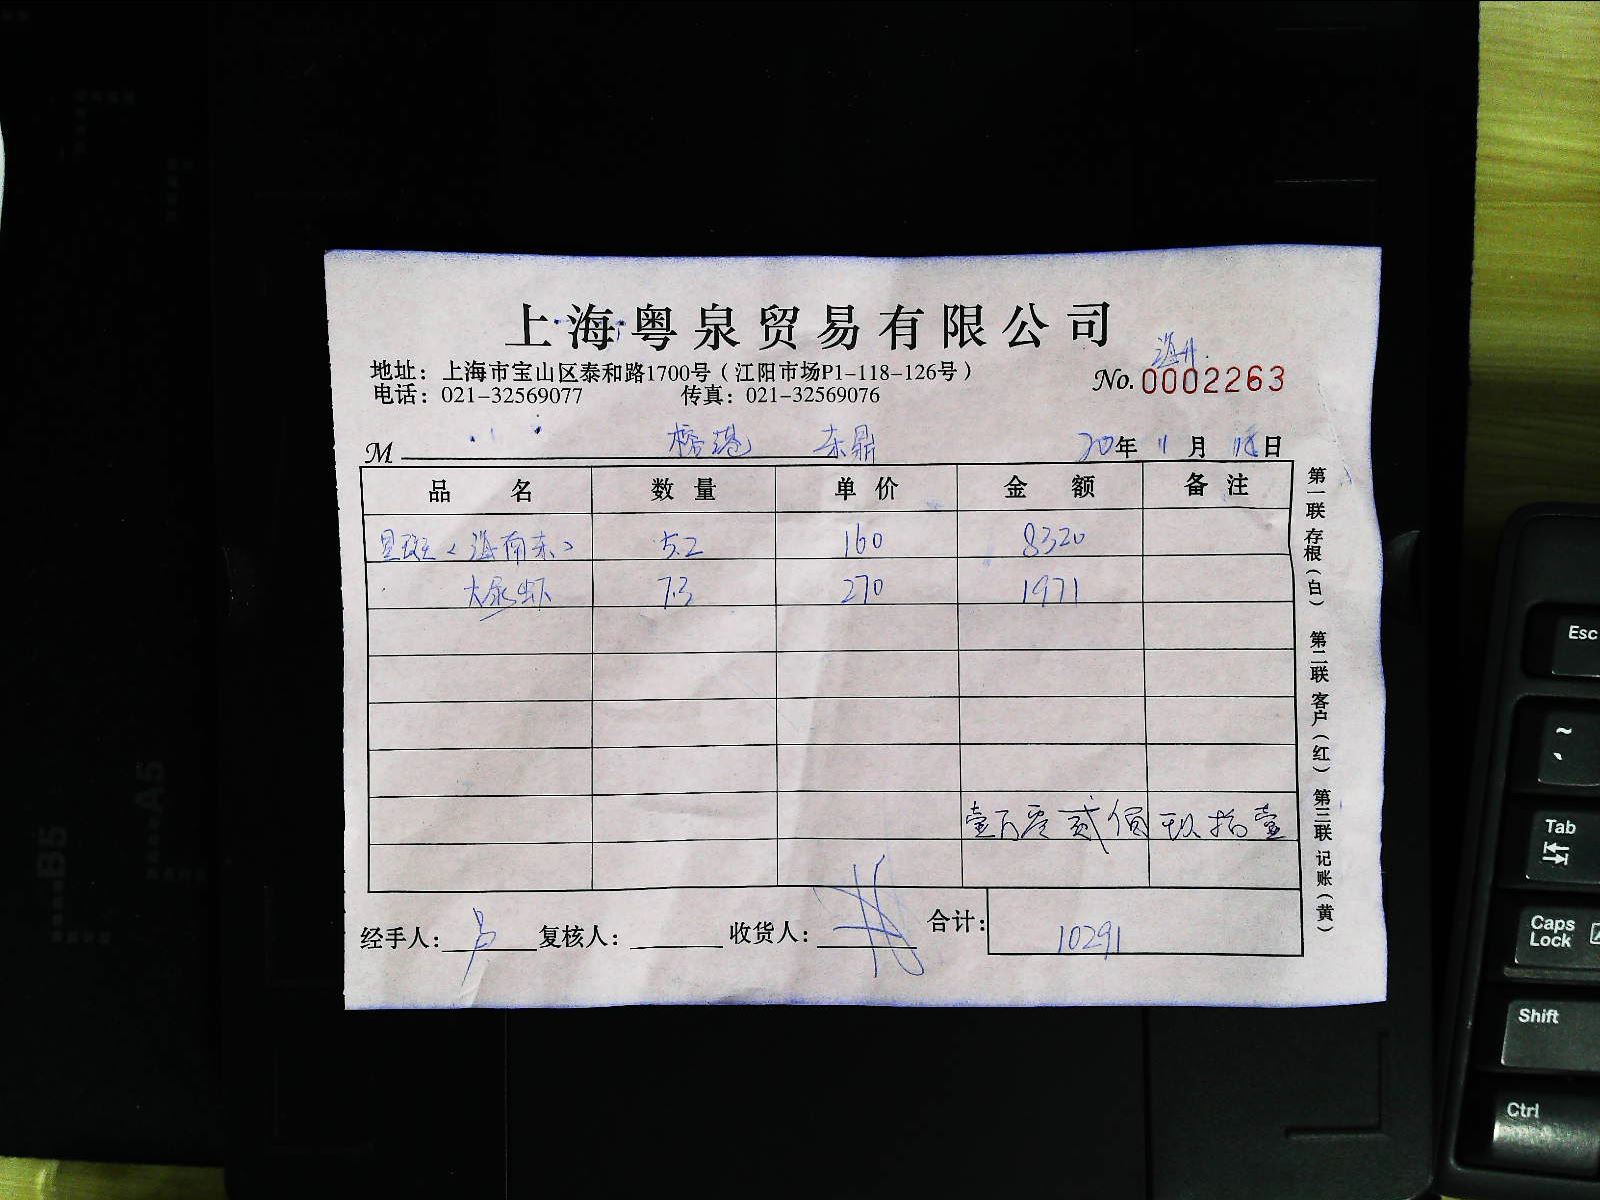 上海粤泉贸易有限公司
地址：上海市宝山区泰和路1700号（江阳市场P1-118-126号）
电话：021-32569077 传真：021-32569076
No.0002263
M 东鼎 20年 11月 18日
品名 数量 单价 金额 备注
星斑<海南东> 52 160 8320
大尿虾 7.3 270 1971
壹万零贰佰玖拾壹
经手人： 复核人： 收货人： 合计：10291
第一联 存根（白） 第二联 客户（红） 第三联 记账（黄）
B5
A5
Esc
~
Tab
Caps Lock
Shift
Ctrl